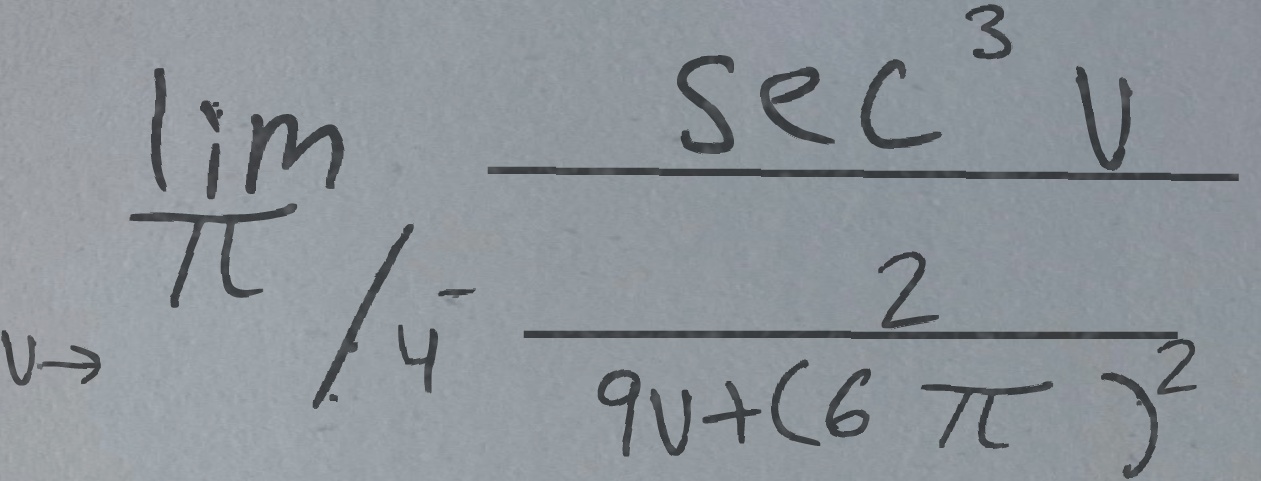 \lim_{v \to \pi/4^-} \frac{\sec^3 v}{\frac{2}{9v+(6\pi)^2}}